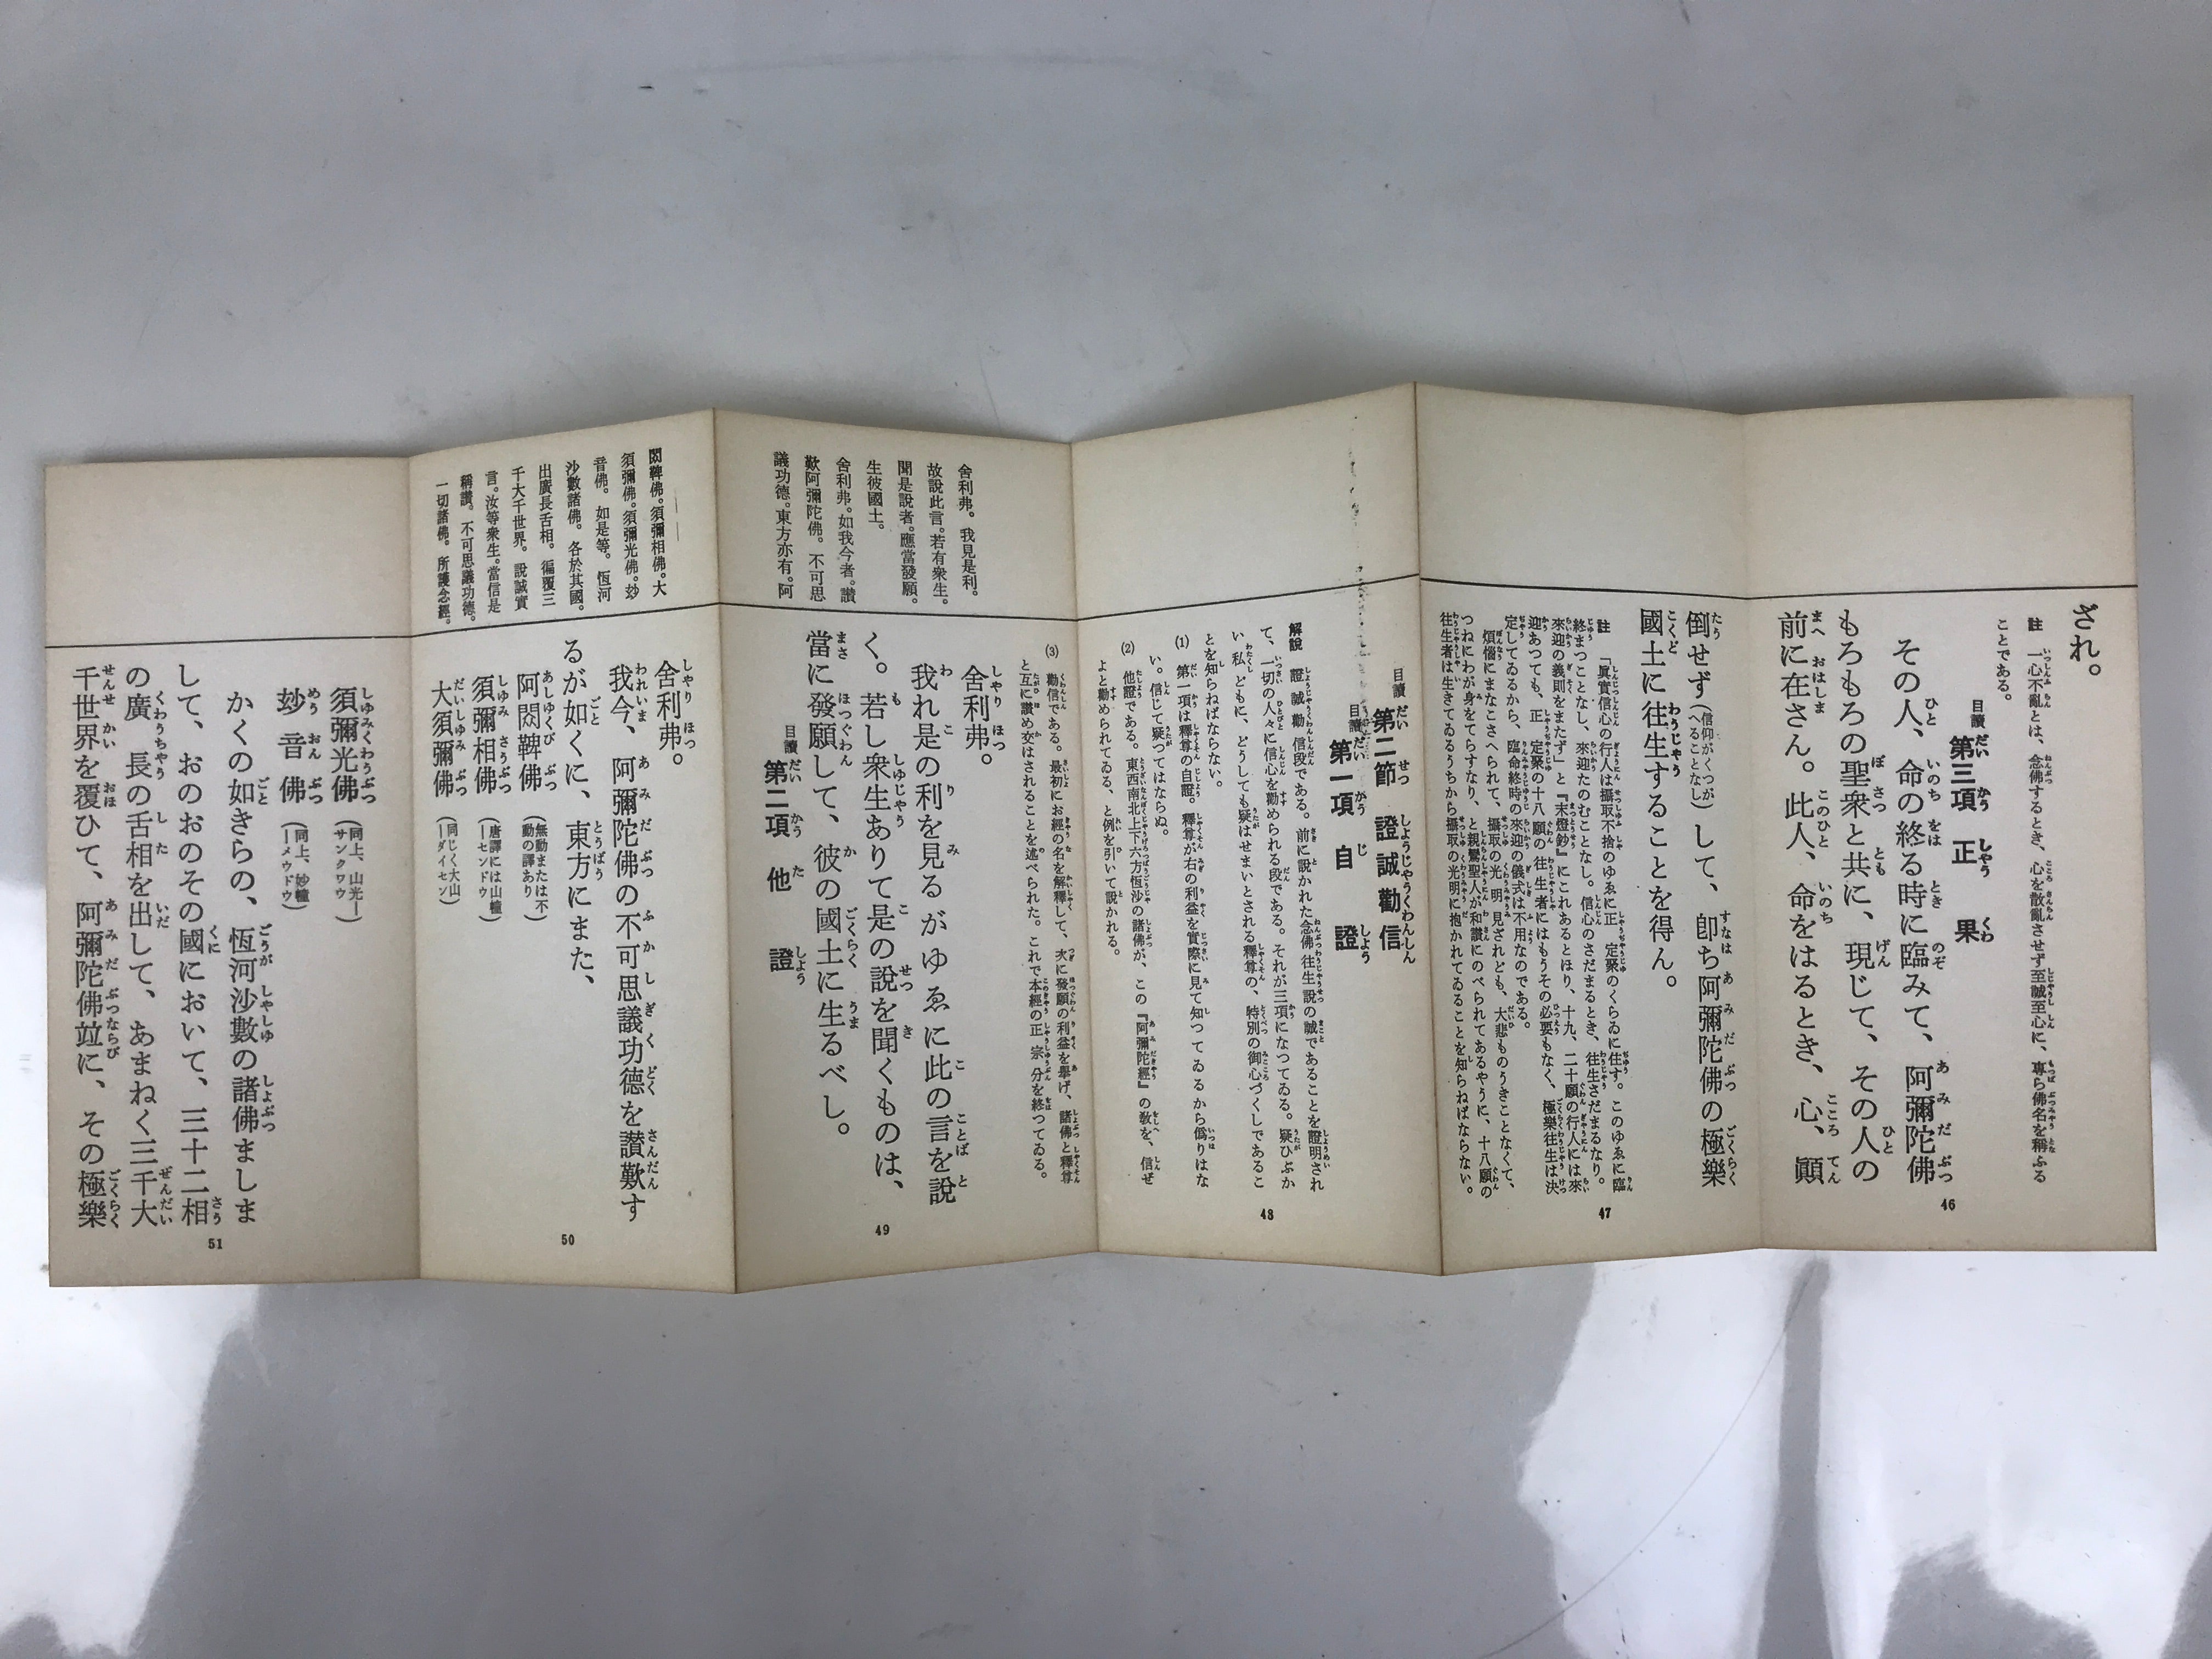 ざれ。
註 一心不亂とは、念佛するとき、心を散亂させず至誠至心に、專ら佛名を稱ふる
ことである。
目讀 第三項 正果
その人、命の終る時に臨みて、阿彌陀佛
もろもろの聖衆と共に、現じて、その人の
前に在さん。此人、命をはるとき、心、顚
46
倒せず(信仰がくつがへることなし)して、卽ち阿彌陀佛の極樂
國土に往生することを得ん。
註 「眞實信心の行人は攝取不捨のゆゑに正定聚のくらゐに住す。このゆゑに臨
終まつことなし、來迎たのむことなし。信心のさだまるとき、往生さだまるなり。
來迎の義則をまたず」と『末燈鈔』にこれあるとほり、十九、二十願の行人には來
迎あつても、正定聚の十八願の往生者にはもうその必要もなく、極樂往生は決
定してゐるから、臨命終時の來迎の儀式は不用なのである。
煩惱にまなこさへられて、攝取の光明見ざれども、大悲ものうきことなくて、
つねにわが身をてらすなり、と親鸞聖人が和讃にのべられてあるやうに、十八願の
往生者は生きてゐるうちから攝取の光明に抱かれてゐることを知らねばならない。
47
目讀 第二節 證誠勸信
目讀 第一項 自證
解說 證誠勸信段である。前に說かれた念佛往生說の誠であることを證明され
て、一切の人々に信心を勸められる段である。それが三項になつてゐる。疑ひぶか
い私どもに、どうしても疑はせまいとされる釋尊の、特別の御心づくしであるこ
とを知らねばならない。
(1) 第一項は釋尊の自證。釋尊が右の利益を實際に見て知つてゐるから僞りはな
い。信じて疑つてはならぬ。
(2) 他證である。東西南北上下六方恆沙の諸佛が、この『阿彌陀經』の敎を、信ぜ
よと勸められてゐる、と例を引いて說かれる。
48
(3) 勸信である。最初にお經の名を解釋して、次に發願の利益を擧げ、諸佛と釋尊
と互に讚め交はされることを述べられた。これで本經の正宗分を終つてゐる。
舍利弗。我見是利。
故說此言。若有衆生。
聞是說者。應當發願。
生彼國土。
舍利弗。如我今者。讚
歎阿彌陀佛。不可思
議功德。東方亦有。阿
舍利弗。
我れ是の利を見るがゆゑに此の言を說
く。若し衆生ありて是の說を聞くものは、
當に發願して、彼の國土に生るべし。
目讀 第二項 他證
49
閦鞞佛。須彌相佛。大
須彌佛。須彌光佛。妙
音佛。如是等。恆河
沙數諸佛。各於其國。
出廣長舌相。徧覆三
千大千世界。說誠實
言。汝等衆生。當信是
稱讚。不可思議功德。
一切諸佛。所護念經。
舍利弗。
我今、阿彌陀佛の不可思議功德を讃歎す
るが如くに、東方にまた、
阿閦鞞佛(無動または不動の譯あり)
須彌相佛(唐譯には山幢ーセンドウ)
大須彌佛(同じく大山ーダイセン)
50
須彌光佛(同上、山光ーサンクワウ)
妙音佛(同上、妙幢ーメウドウ)
かくの如きらの、恆河沙數の諸佛ましま
して、おのおのその國において、三十二相
の廣長の舌相を出して、あまねく三千大
千世界を覆ひて、阿彌陀佛竝に、その極樂
51